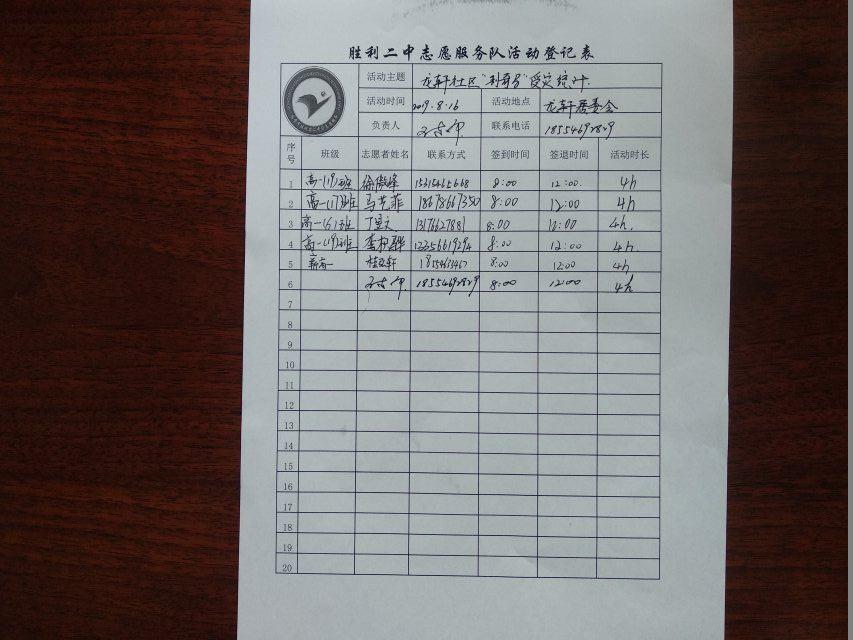 胜利二中志愿服务队活动登记表
活动主题 龙轩社区"利奇马"受灾统计
活动时间 2019.8.16 活动地点 龙轩居委会
负责人 联系电话 18554692829
序号 班级 志愿者姓名 联系方式 签到时间 签退时间 活动时长
1 高一(19)班 8:00 12:00. 4h
2 高一(17)班 马克菲 18678667350 8:00 12:00 4h
3 高一(5)班 8:00 12:00 4h.
4 高一(19)班 8:00 12:00 4h.
5 新高一 8:00 12:00 4h
6 18554692829 8:00 12:00 4h
7
8
9
10
11
12
13
14
15
16
17
18
19
20